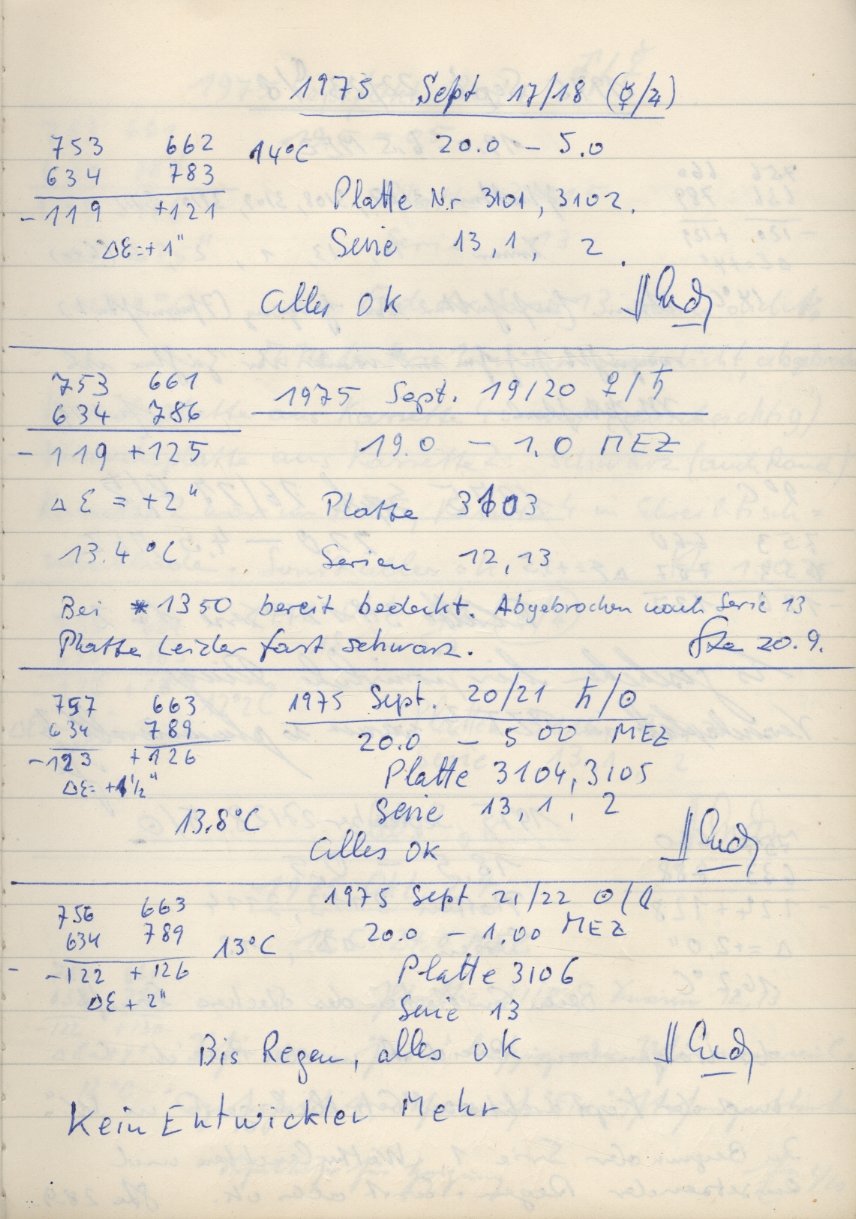 1975 Sept 17/18 (☿/♃)
753 662 14°C 20.0 – 5.0
634 783 Platte Nr 3101, 3102.
-119 +121
Δε=+1" Serie 13, 1, 2.
alles OK
753 661 1975 Sept. 19/20 ♀/♄
634 786
-119 +125 19.0 – 1.0 MEZ
Δε = +2" Platte 3103
13.4°C Serien 12, 13
Bei *1350 bereit bedeckt. Abgebrochen nach Serie 13
Platte leider fast schwarz. 20.9.
757 663 1975 Sept. 20/21 ♄/☉
634 789
-123 +126 20.0 – 5 00 MEZ
Δε=+1½" Platte 3104, 3105
13,8°C Serie 13, 1, 2
alles OK
756 663 1975 Sept 21/22 ☉/☾
634 789 13°C 20.0 – 1.00 MEZ
-122 +126 Platte 3106
Δε+2" Serie 13
Bis Regen, alles OK
Kein Entwickler Mehr